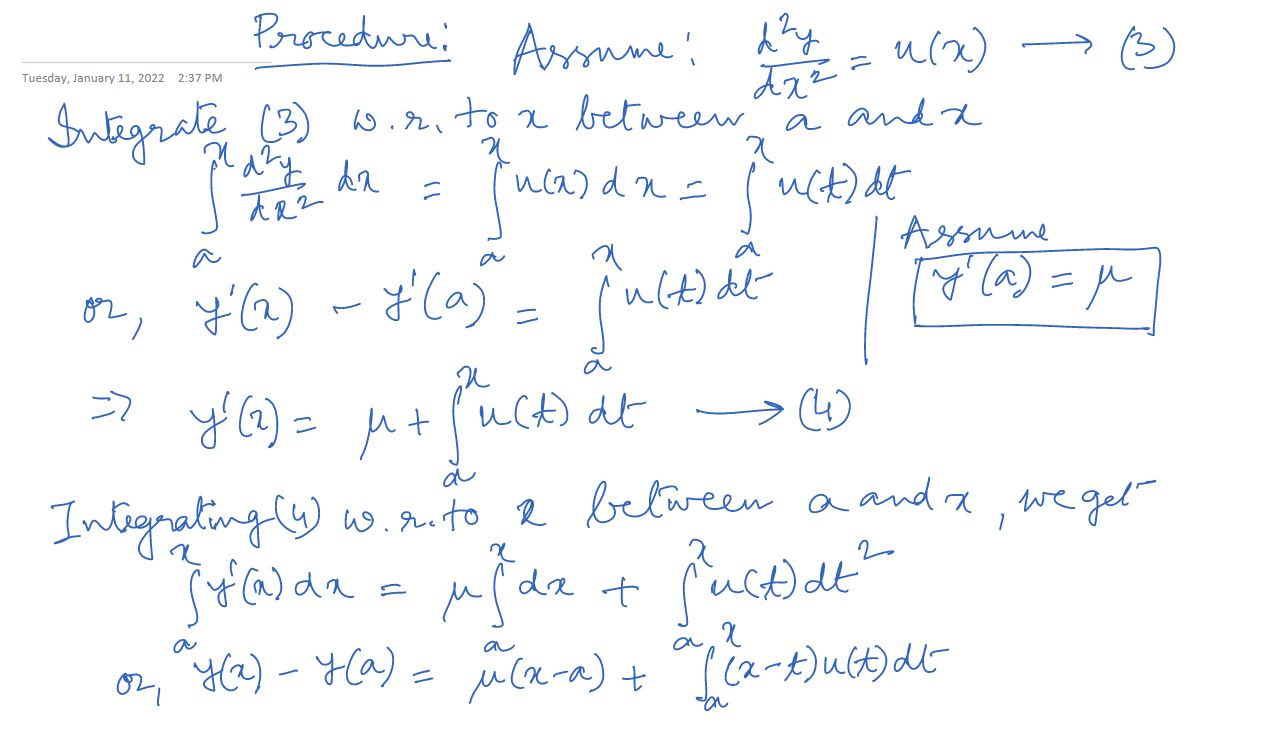 Procedure: Assume: d²y/dx² = u(x) ⟶ (3)
Tuesday, January 11, 2022 2:37 PM
Integrate (3) w.r. to x between a and x
∫ₐˣ d²y/dx² dx = ∫ₐˣ u(x) dx = ∫ₐˣ u(t) dt
or, y'(x) - y'(a) = ∫ₐˣ u(t) dt | Assume
y'(a) = μ
⇒ y'(x) = μ + ∫ₐˣ u(t) dt ⟶ (4)
Integrating (4) w.r. to x between a and x, we get
∫ₐˣ y'(x) dx = μ ∫ₐˣ dx + ∫ₐˣ u(t) dt²
or, y(x) - y(a) = μ(x-a) + ∫ₐˣ (x-t) u(t) dt